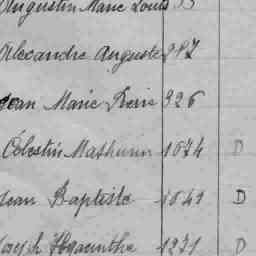 Augustin Marie Louis 55
Alexandre Auguste 987
Jean Marie Pierre 326
Célestin Mathurin 1074 D
Jean Baptiste 1049 D
Joseph Hyacinthe 1231 D